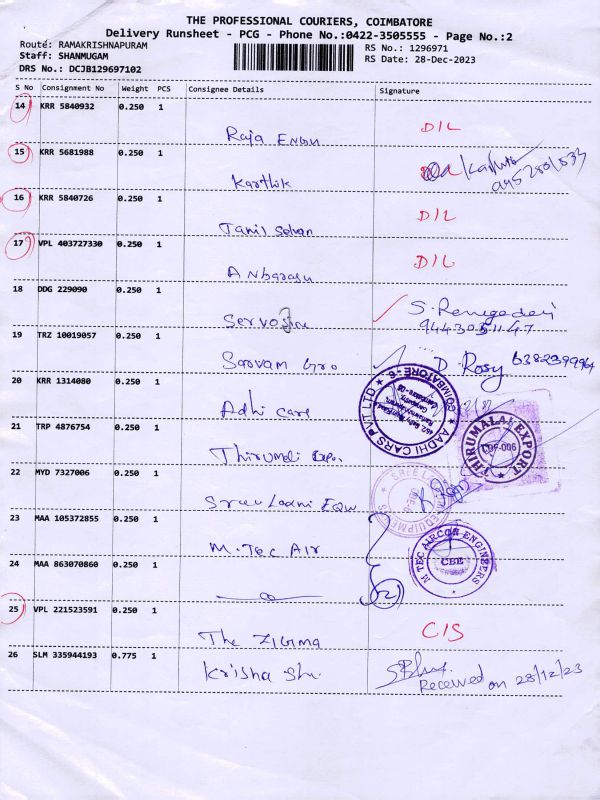 THE PROFESSIONAL COURIERS, COIMBATORE
Delivery Runsheet - PCG - Phone No.:0422-3505555 - Page No.:2
Route: RAMAKRISHNAPURAM RS No.: 1296971
Staff: SHANMUGAM RS Date: 28-Dec-2023
DRS No.: DCJB129697102
S No Consignment No Weight PCS Consignee Details Signature
14 KRR 5840932 0.250 1
Raja Enbu D/L
15 KRR 5681988 0.250 1
Karthik
16 KRR 5840726 0.250 1
Tamil Selvan D/L
17 VPL 403727330 0.250 1
Anbarasu D/L
18 DDG 229090 0.250 1
S. Renugadevi
19 TRZ 10019057 0.250 1
Sarvam Gro D. Rosy 6382399964
20 KRR 1314080 0.250 1
Adhi care
AADHI CARS PVT LTD
COIMBATORE - 6
21 TRP 4876754 0.250 1
Thirumali Expo.
THIRUMALAI EXPORT
22 MYD 7327006 0.250 1
23 MAA 105372855 0.250 1
M. Tec Air
M TEC AIRCON ENGINEERS
CBE
24 MAA 863070860 0.250 1
25 VPL 221523591 0.250 1
The C/S
26 SLM 335944193 0.775 1
Krisha Shr.
Received on 28/12/23